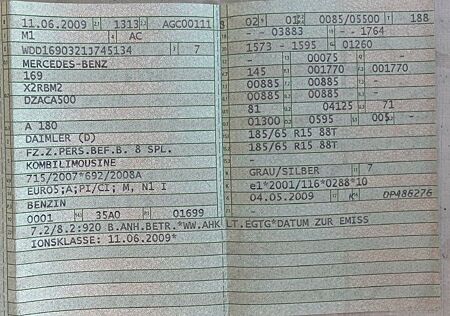 11.06.2009 1313 AGC00111
M1 AC
WDD16903211J745134 7
MERCEDES-BENZ
169
X2RBM2
DZACA500
-
A 180
DAIMLER (D)
FZ.Z.PERS.BEF.B. 8 SPL.
KOMBILIMOUSINE
715/2007*692/2008A
EURO5;A;PI/CI; M, N1 I
BENZIN
0001 35A0 01699
7.2/8.2:920 B.ANH.BETR.*WW.AHK LT.EGTG*DATUM ZUR EMISS
IONSKLASSE: 11.06.2009*
02 0085/05500 188
- - 03883 - -1764
1573 - 1595 01260
- 00075 -
145 001770 001770
00885 00885 -
00885 00885 -
81 04125 71
01300 0595 005
185/65 R15 88T
185/65 R15 88T
-
GRAU/SILBER 7
e1*2001/116*0288*10
04.05.2009 K DP486276